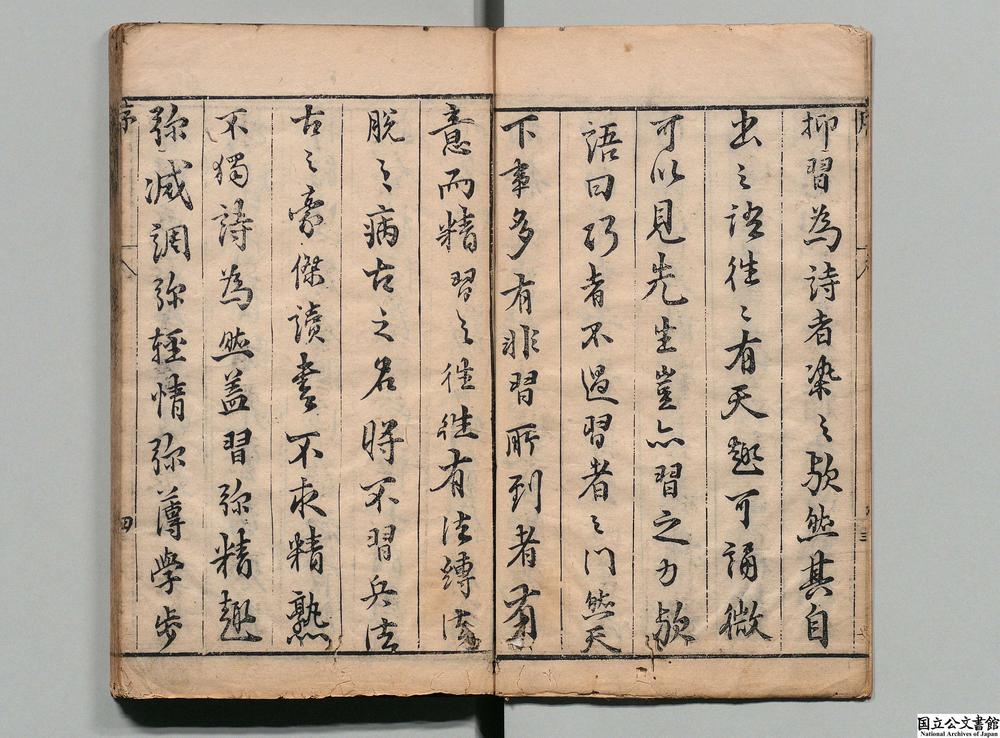 抑習為詩者染〻歟然其自
出之語徃〻有天趣可誦微
可以見先生豈亦習之力歟
語曰巧者不過習者之門然天
下事多有非習所到者有
意而精習之徃徃有法縛法
脫之病古之名將不習兵法
古之豪傑讀書不求精熟
不獨詩為然蓋習弥精趣
弥減調弥輕情弥薄學步
序
四
国立公文書館
National Archives of Japan